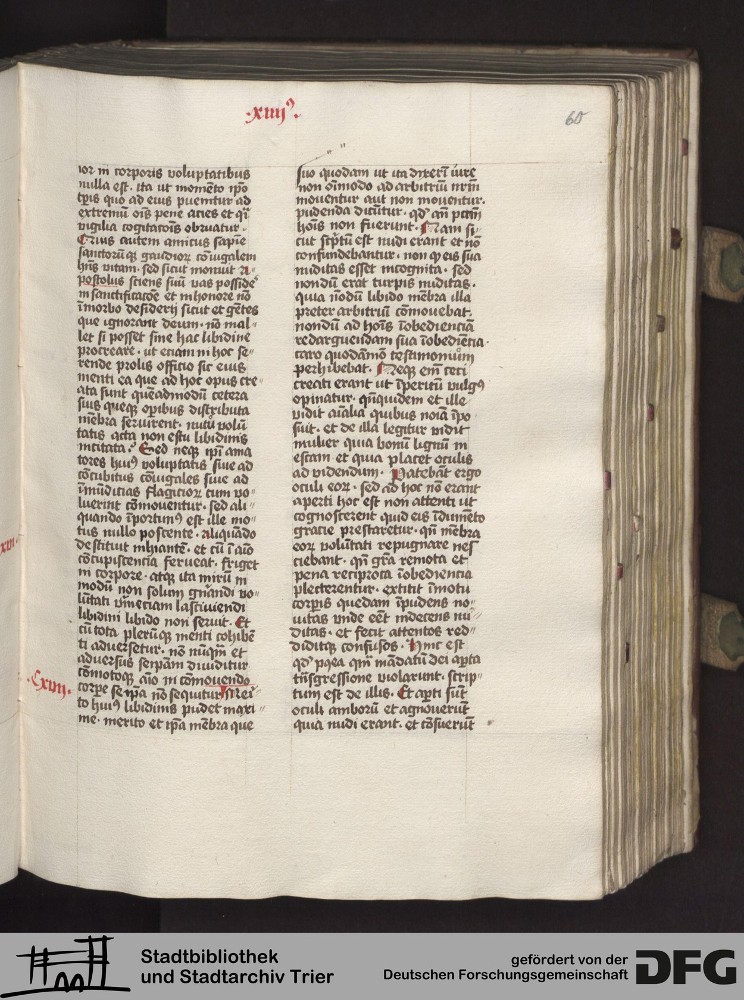 .xiiij⁹.
60
ior in corporis voluptatibus
nulla est. ita ut momēto ip̄o
tp̄is quo ad eius puenitur ad
extremū oīs pene acies et q̄i
vigilia cogitatōis obruatur.
Quis autem amicus sapīe
sanctorūq; gaudiorꝝ cōiugalem
hn̄s vitam. sed sicut monuit a-
postolus sciens suū vas posside
in sanctificatōe et in honore nō
ī morbo desiderij sicut et gētes
que ignorant deum. nō mal-
let si posset sine hac libidine
procreare. ut eciam in hoc se-
rende prolis officio sic eius
menti ea que ad hoc opus cre-
ata sunt queādmodū cetera
suis queq; opibus distributa
mēbra servirent. nutu volū
tatis acta non estu libidinis
incitata. Sed neq; ip̄i ama
tores huiꝰ voluptatis sive ad
cōcubitus cōiugales sive ad
īmūdicias flagiciorꝝ cum vo-
luerint cōmoventur. sed ali-
quando īportunꝰ est ille mo-
tus nullo poscente. aliquādo
destituit inhiantē. et cū ī aīo
cōcupiscencia ferveat. friget
in corpore. atq; ita mirū in
modū non solum gn̄andi vo-
lūtati verūeciam lasciviendi
libidini libido non servit. Et
cū tota plerūq; menti cohibē
ti adversetur. nō nūq̄m et
adversus seip̄am dividitur
cōmotoq; aīo in cōmovendo
corpe se ip̄a nō sequitur. Mei-
to huiꝰ libidinis pudet maxi-
me. merito et ip̄a mēbra que
xiii.
Cxviij.
suo quodam ut ita dixerī iure
non oīmodo ad arbitriū nr̄m
moventur aut non moventur.
pudenda dicūtur. qd̄ an̄ pctm̄
hoīs non fuerunt. Nam si-
cut scptū est nudi erant et nō
confundebantur. non q̄ eis sua
nuditas esset incognita. sed
nondū erat turpis nuditas.
quia nōdū libido mēbra illa
preter arbitriū cōmovebat.
nondū ad hoīs īobedienciā
redarguēdam sua īobediēcia
caro quodāmō testimoniūm
perhibebat. Neq; enī ceci
creati erant ut īperitū vulgꝰ
opinatur. qn̄quidem et ille
vidit aīalia quibus noīa īpo
suit. et de illa legitur vidit
mulier quia bonū lignū in
escam et quia placet oculis
ad videndum. Patebāt ergo
oculi eorꝝ. sed ad hoc nō erant
aperti hoc est non attenti ut
cognoscerent quid eis īdumēto
gracie prestaretur. qn̄ mēbra
eorꝝ volūtati repugnare nes
ciebant. qn̄ gr̄a remota et
pena reciproca īobediencia
plecterentur. extitit ī motu
corpis quedam īpudens no-
vitas unde eēt indecens nu-
ditas. et fecit attentos red-
diditq; confusos. Hinc est
qd̄ pꝰea qm̄ mādatū dei apta
tn̄sgressione violarunt. scrip-
tum est de illis. Et apti sūt
oculi amborū et agnoverūt
quia nudi erant. et cōsuerūt
Stadtbibliothek
und Stadtarchiv Trier
gefördert von der
Deutschen Forschungsgemeinschaft
DFG